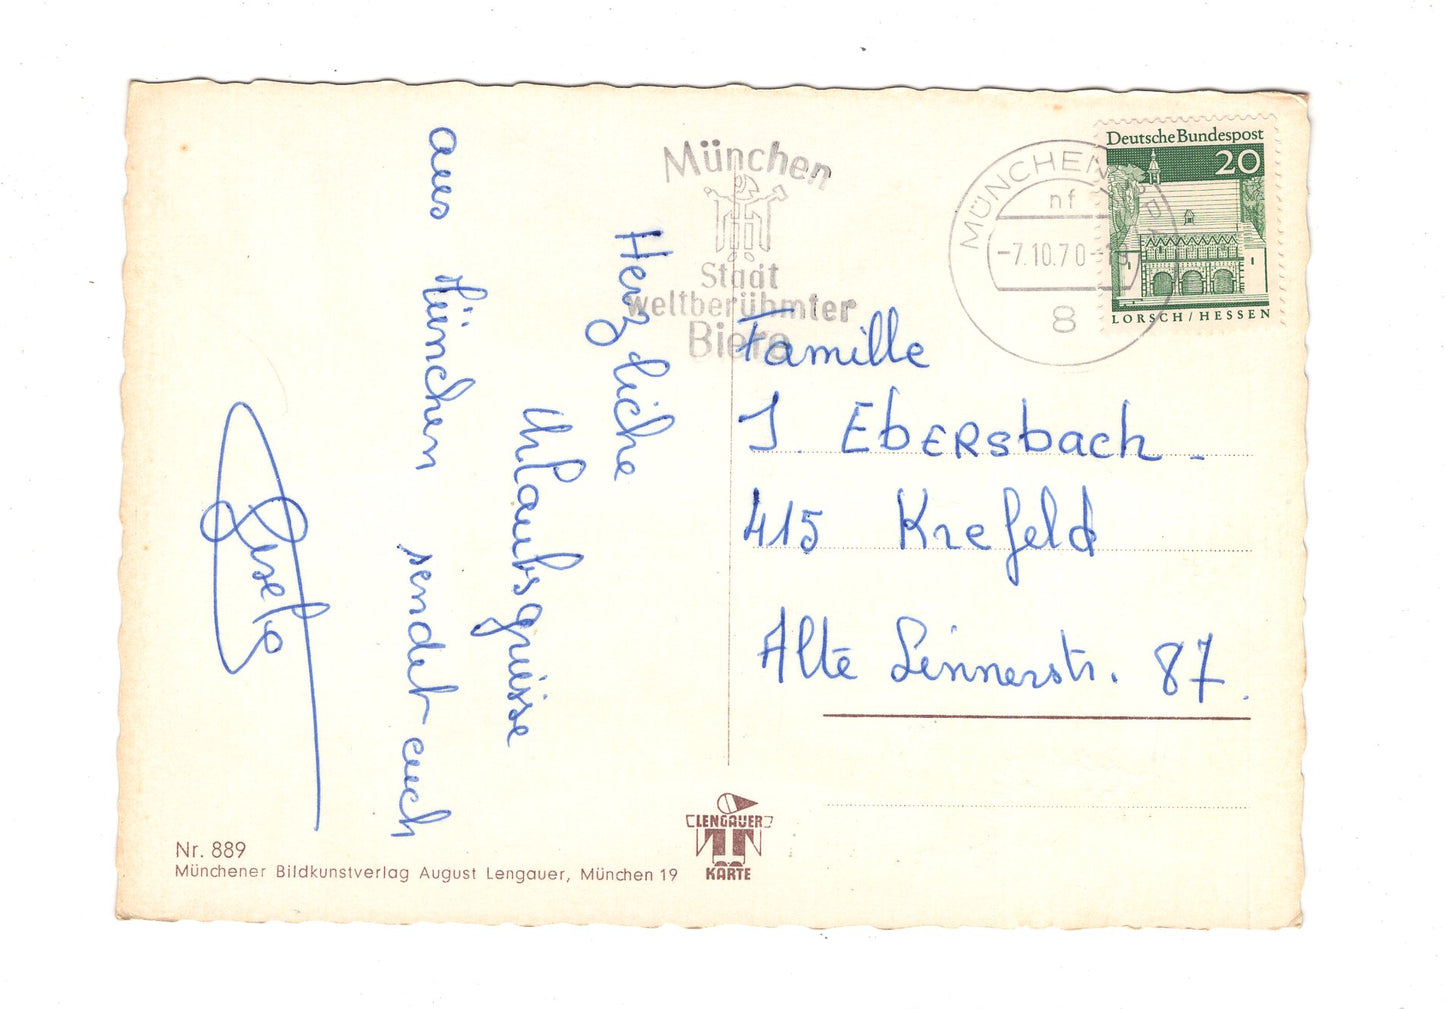 Herzliche
Uhlaubsgrüsse
aus München sendet euch
Gisela
München
Stadt
weltberühmter
Biere
MÜNCHEN
nf
-7.10.70-
8
Deutsche Bundespost
20
LORSCH / HESSEN
Familie
J Ebersbach -
415 Krefeld
Alte Linnerstr. 87.
Nr. 889
Münchener Bildkunstverlag August Lengauer, München 19
LENGAUER
KARTE